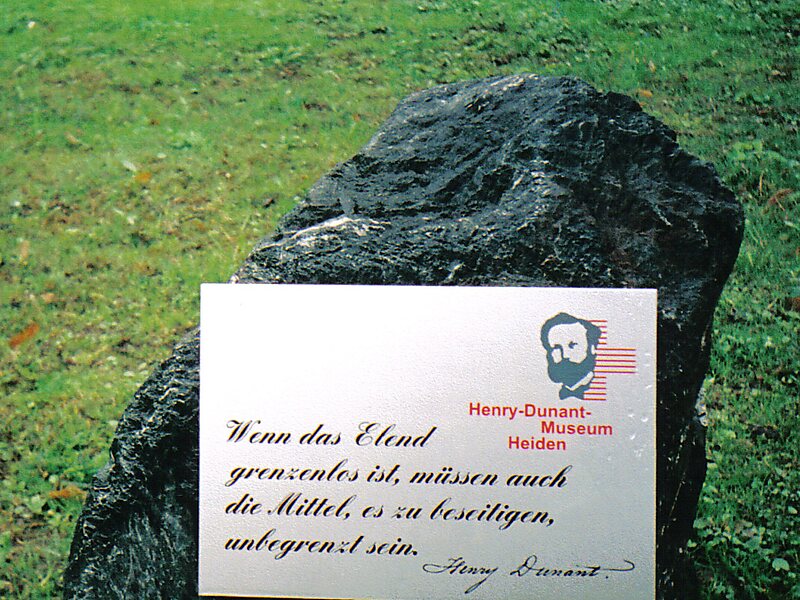 Henry-Dunant-
Museum
Heiden
Wenn das Elend
grenzenlos ist, müssen auch
die Mittel, es zu beseitigen,
unbegrenzt sein.
Henry Dunant.